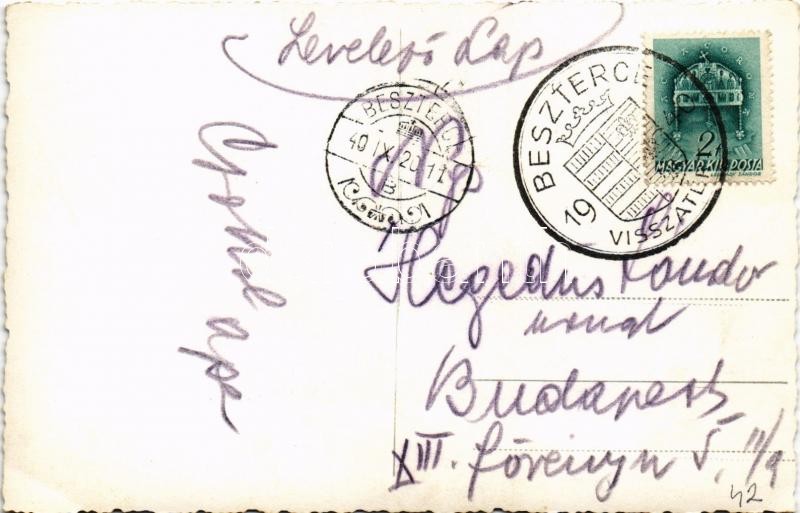 Levelező Lap
BESZTERCE
40 IX. 20. 11
B
BESZTERCE
19
VISSZATÉRT
2f
MAGYAR KIR. POSTA
Ng
Hegedüs Sándor
Budapest
XIII.
Csókol apa
42